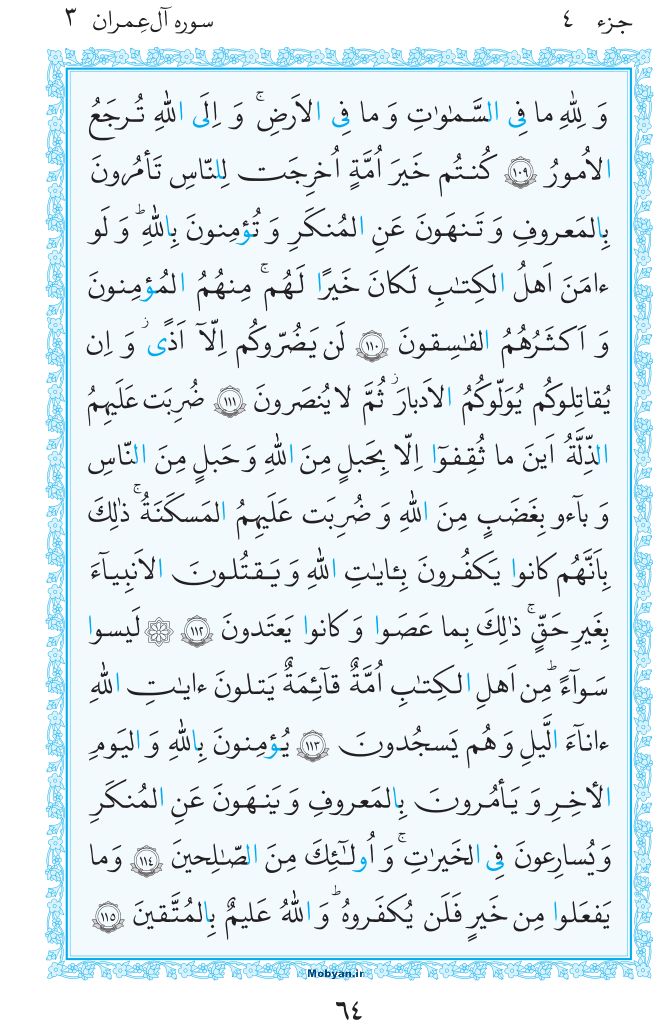 جزء ٤ سوره آل‌عِمران ٣
وَ لِلّٰهِ ما فِی السَّمٰوٰتِ وَ ما فِی الاَرضِ ۚ وَ اِلَی اللّٰهِ تُرجَعُ
الاُمورُ ﴿١٠٩﴾ کُنتُم خَیرَ اُمَّةٍ اُخرِجَت لِلنّاسِ تَأمُرونَ
بِالمَعروفِ وَ تَنهَونَ عَنِ المُنکَرِ وَ تُؤمِنونَ بِاللّٰهِ ۗ وَ لَو
ءامَنَ اَهلُ الکِتٰبِ لَکانَ خَیرًا لَهُم ۚ مِنهُمُ المُؤمِنونَ
وَ اَکثَرُهُمُ الفٰسِقونَ ﴿١١٠﴾ لَن یَضُرّوکُم اِلّآ اَذًی ۖ وَ اِن
یُقاتِلوکُم یُوَلّوکُمُ الاَدبارَ ثُمَّ لا یُنصَرونَ ﴿١١١﴾ ضُرِبَت عَلَیهِمُ
الذِّلَّةُ اَینَ ما ثُقِفوٓا اِلّا بِحَبلٍ مِنَ اللّٰهِ وَ حَبلٍ مِنَ النّاسِ
وَ بآءو بِغَضَبٍ مِنَ اللّٰهِ وَ ضُرِبَت عَلَیهِمُ المَسکَنَةُ ۚ ذٰلِکَ
بِاَنَّهُم کانوا یَکفُرونَ بِـٔایٰتِ اللّٰهِ وَ یَقتُلونَ الاَنبِیآءَ
بِغَیرِ حَقٍّ ۚ ذٰلِکَ بِما عَصَوا وَ کانوا یَعتَدونَ ﴿١١٢﴾ ۞ لَیسوا
سَوآءً ۗ مِن اَهلِ الکِتٰبِ اُمَّةٌ قآئِمَةٌ یَتلونَ ءایٰتِ اللّٰهِ
ءانآءَ الَّیلِ وَ هُم یَسجُدونَ ﴿١١٣﴾ یُؤمِنونَ بِاللّٰهِ وَ الیَومِ
الأخِرِ وَ یَأمُرونَ بِالمَعروفِ وَ یَنهَونَ عَنِ المُنکَرِ
وَ یُسارِعونَ فِی الخَیرٰتِ ۚ وَ اُولٰٓئِکَ مِنَ الصّٰلِحینَ ﴿١١٤﴾ وَ ما
یَفعَلوا مِن خَیرٍ فَلَن یُکفَروهُ ۗ وَ اللّٰهُ عَلیمٌ بِالمُتَّقینَ ﴿١١٥﴾
Mobyan.ir
٦٤